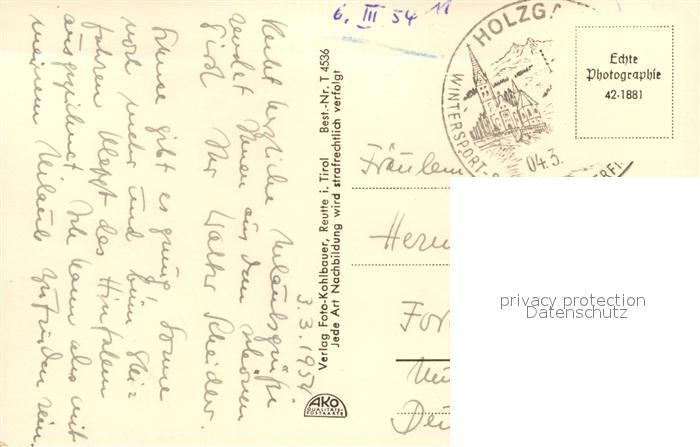 6. III 54
HOLZGA
WINTERSPORT-
04.3.
Echte
Photographie
42-1881
Recht herzliche Urlaubsgrüße
sendet Ihnen aus dem schönen
Tirol Ihr Walter
3.3.1954
Schnee gibt es genug, Sonne
noch mehr und beim Ski=
fahren klappt das Hinfallen
ausgezeichnet. Ich kann also mit
meinem Urlaub zufrieden sein.
Verlag Foto-Kohlbauer, Reutte i. Tirol Best.-Nr. T 4536
Jede Art Nachbildung wird strafrechtlich verfolgt
AKO
QUALITÄTS-
POSTKARTE
Fräulein
privacy protection
Datenschutz